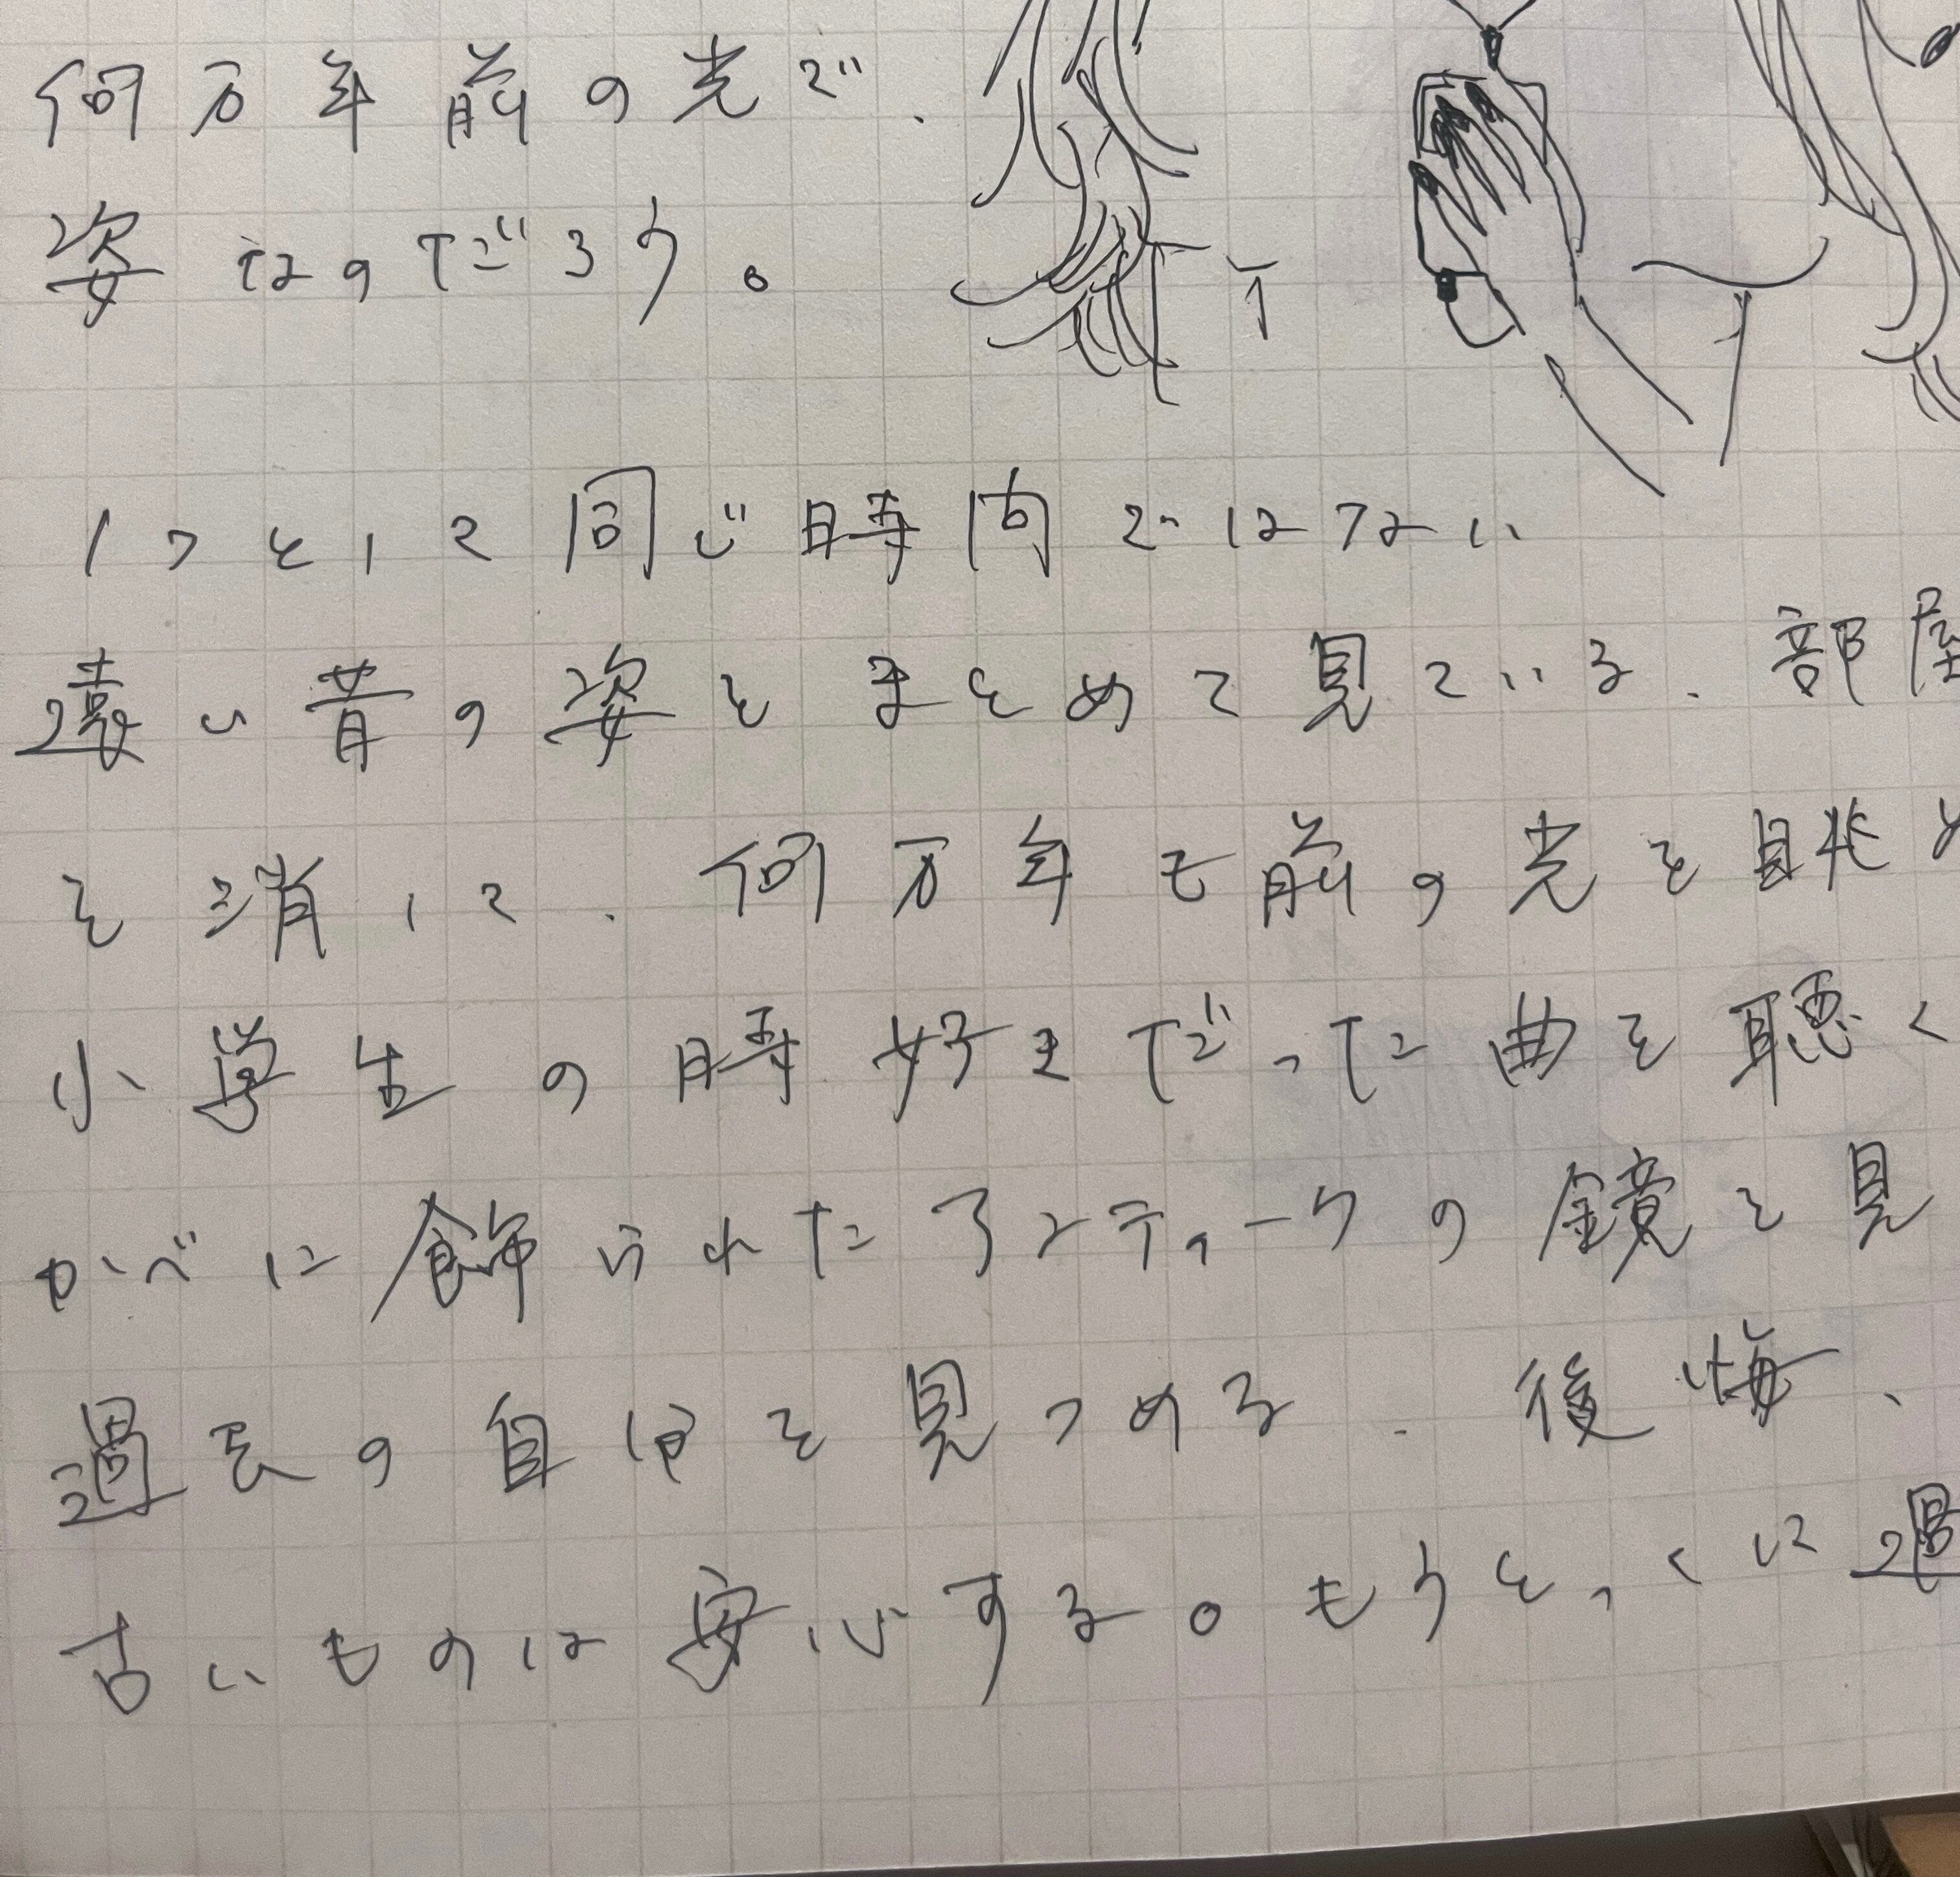 何万年前の光で、
姿なのだろう。
1つとして同じ時間ではない
遠い昔の姿をまとめて見ている、部屋
を消して、何万年も前の光を眺め
小学生の時好きだった曲を聴く
かべに飾られたアンティークの鏡を見
過去の自分を見つめる、後悔、
古いものは安心する。もうとっくに過